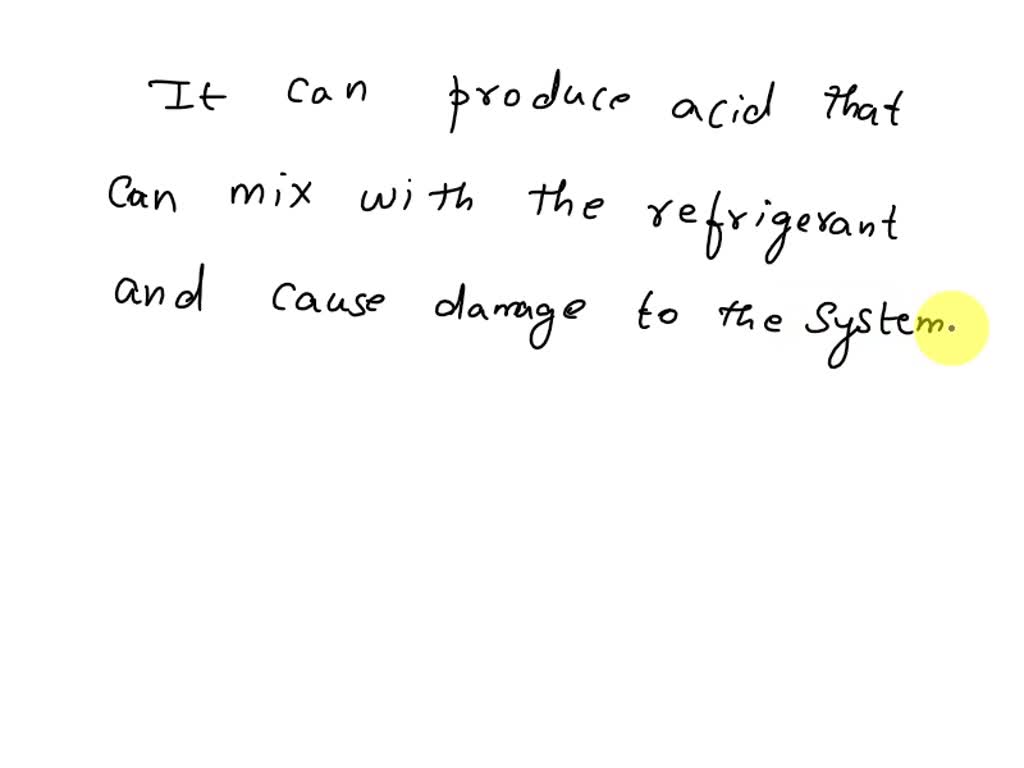 It can produce acid that
can mix with the refrigerant
and cause damage to the system.